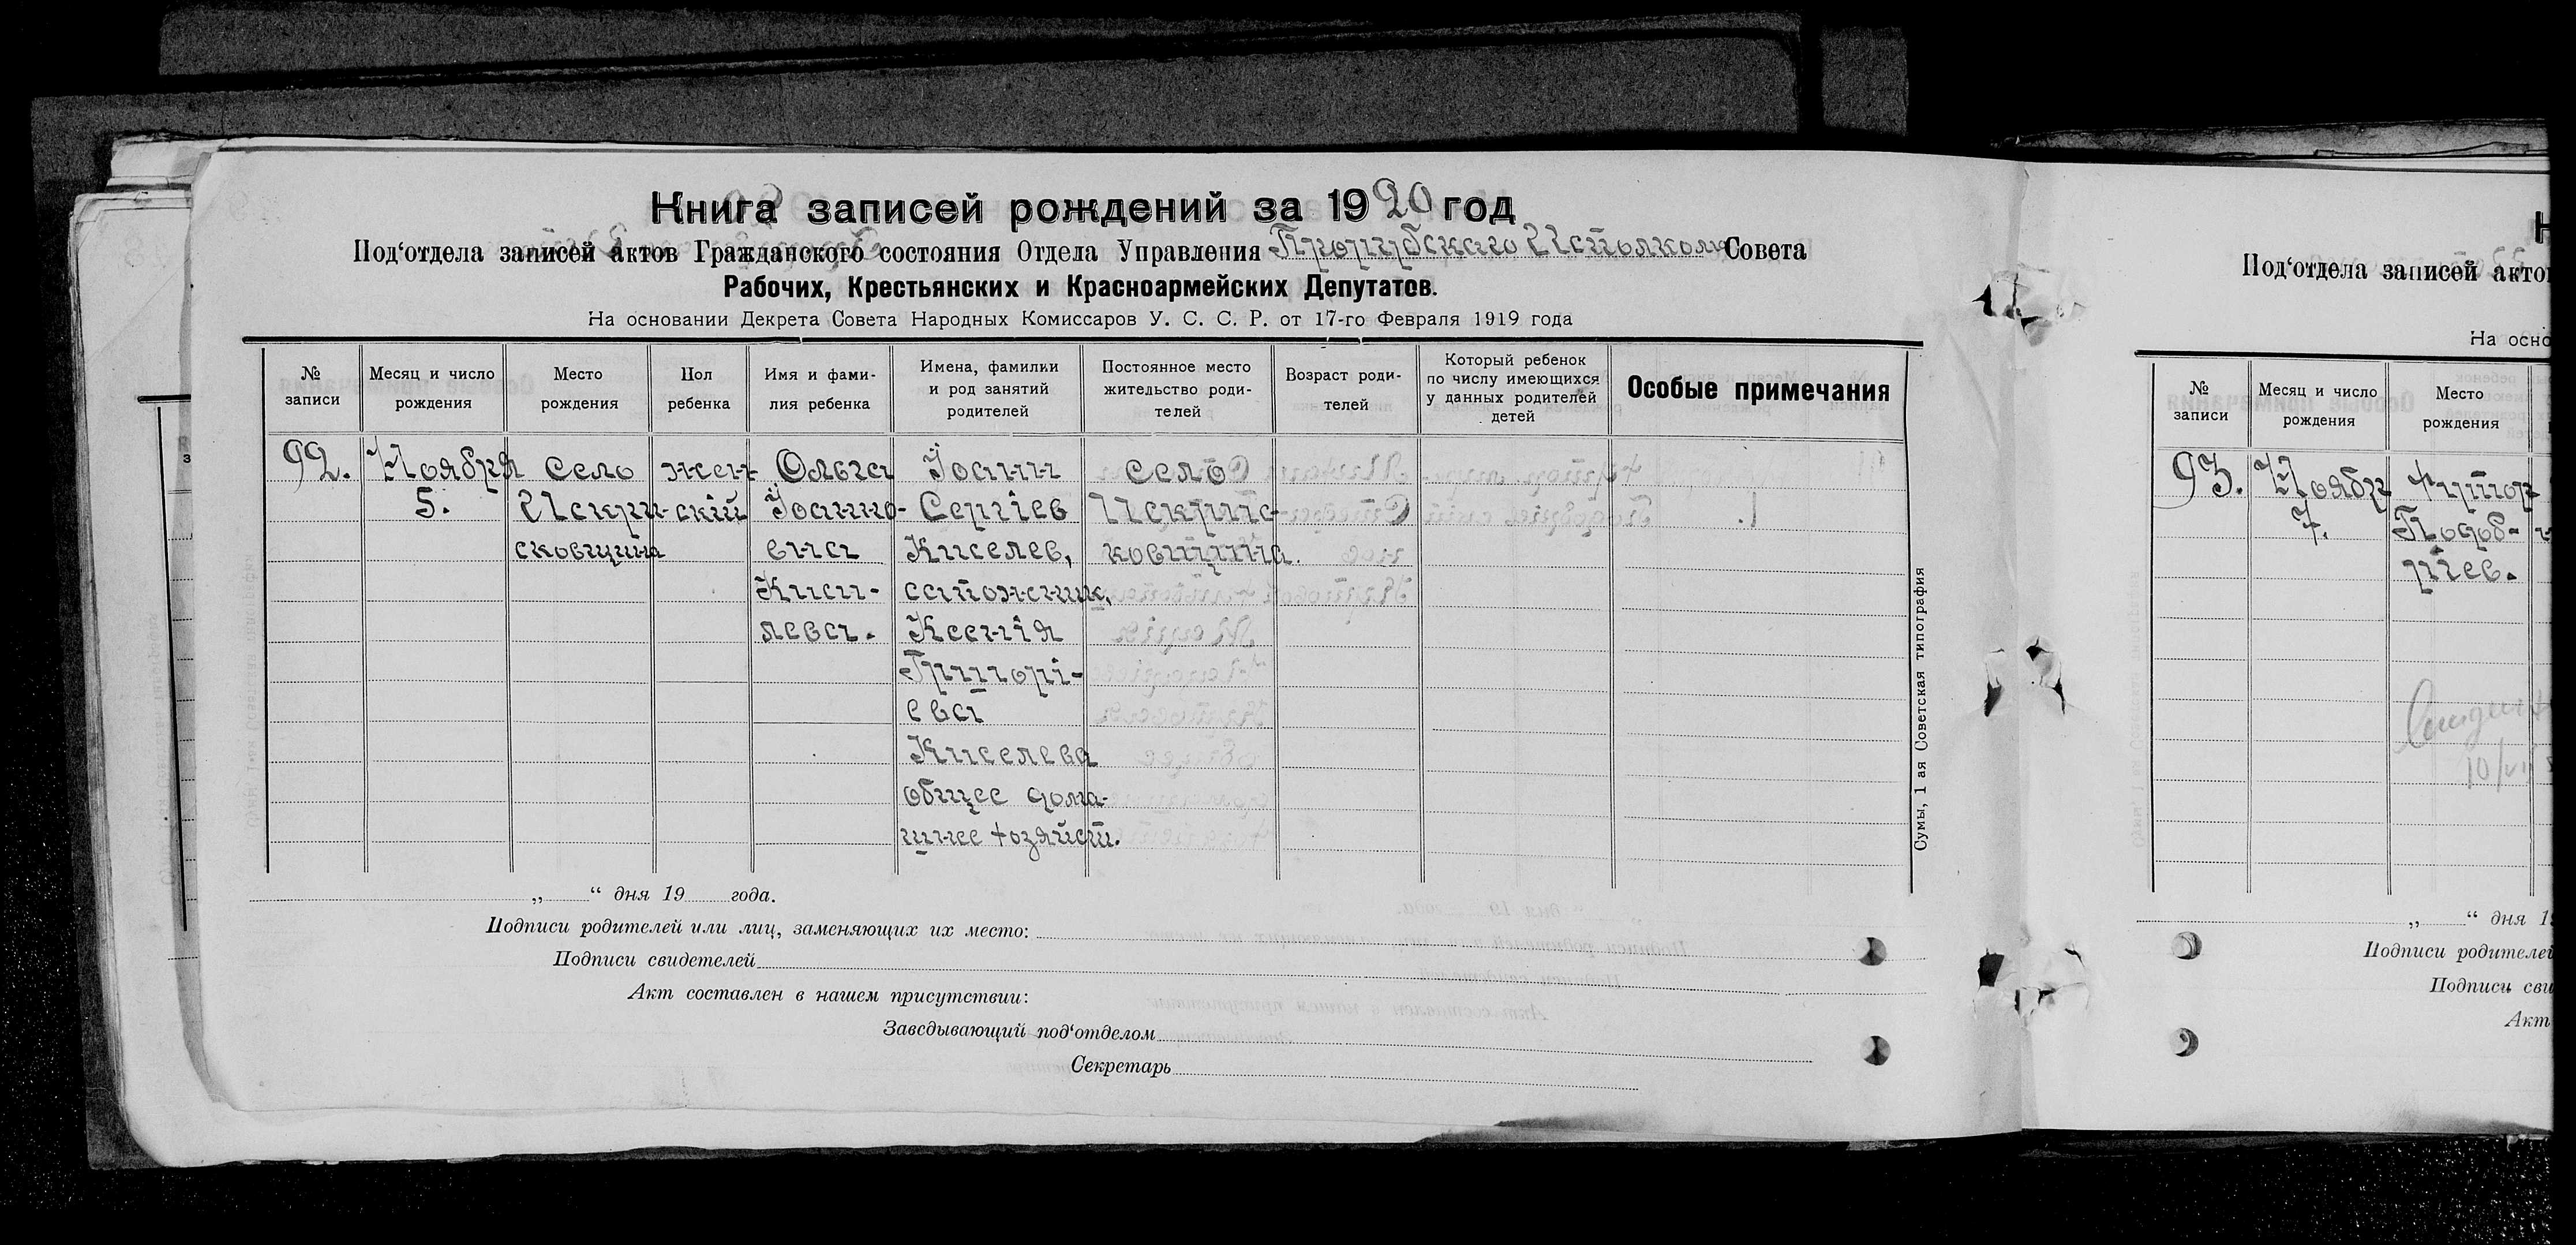 Книга записей рождений за 1920 год
Под‘отдела записей актов Гражданского состояния Отдела Управления Исполкома Совета
Рабочих, Крестьянских и Красноармейских Депутатов.
На основании Декрета Совета Народных Комиссаров У. С. С. Р. от 17-го Февраля 1919 года
№ записи
Месяц и число рождения
Место рождения
Пол ребенка
Имя и фами-
лия ребенка
Имена, фамилии
и род занятий
родителей
Постоянное место
жительство роди-
телей
Возраст роди-
телей
Который ребенок
по числу имеющихся
у данных родителей
детей
Особые примечания
92.
Ноября
5.
село
Искри-
сковщина
жен-
ский
Ольга
Іоанно-
вна
Киси-
лева.
Іоанн
Сергіев
Киселев,
сапожник,
Ксенія
Григорі-
ева
Киселева
общее дома-
шнее хозяйст.
село
Искрис-
ковщина.
1.
„ “ дня 19 года.
Подписи родителей или лиц, заменяющих их место:
Подписи свидетелей
Акт составлен в нашем присутствии:
Заведывающий под‘отделом
Секретарь
Сумы, 1 ая Советская типография
Под‘отдела записей акто
На осно
№ записи
Месяц и число рождения
Место рождения
93.
Ноября
7.
хутор
„ “ дня 1
Подписи родителей
Подписи сви
Акт